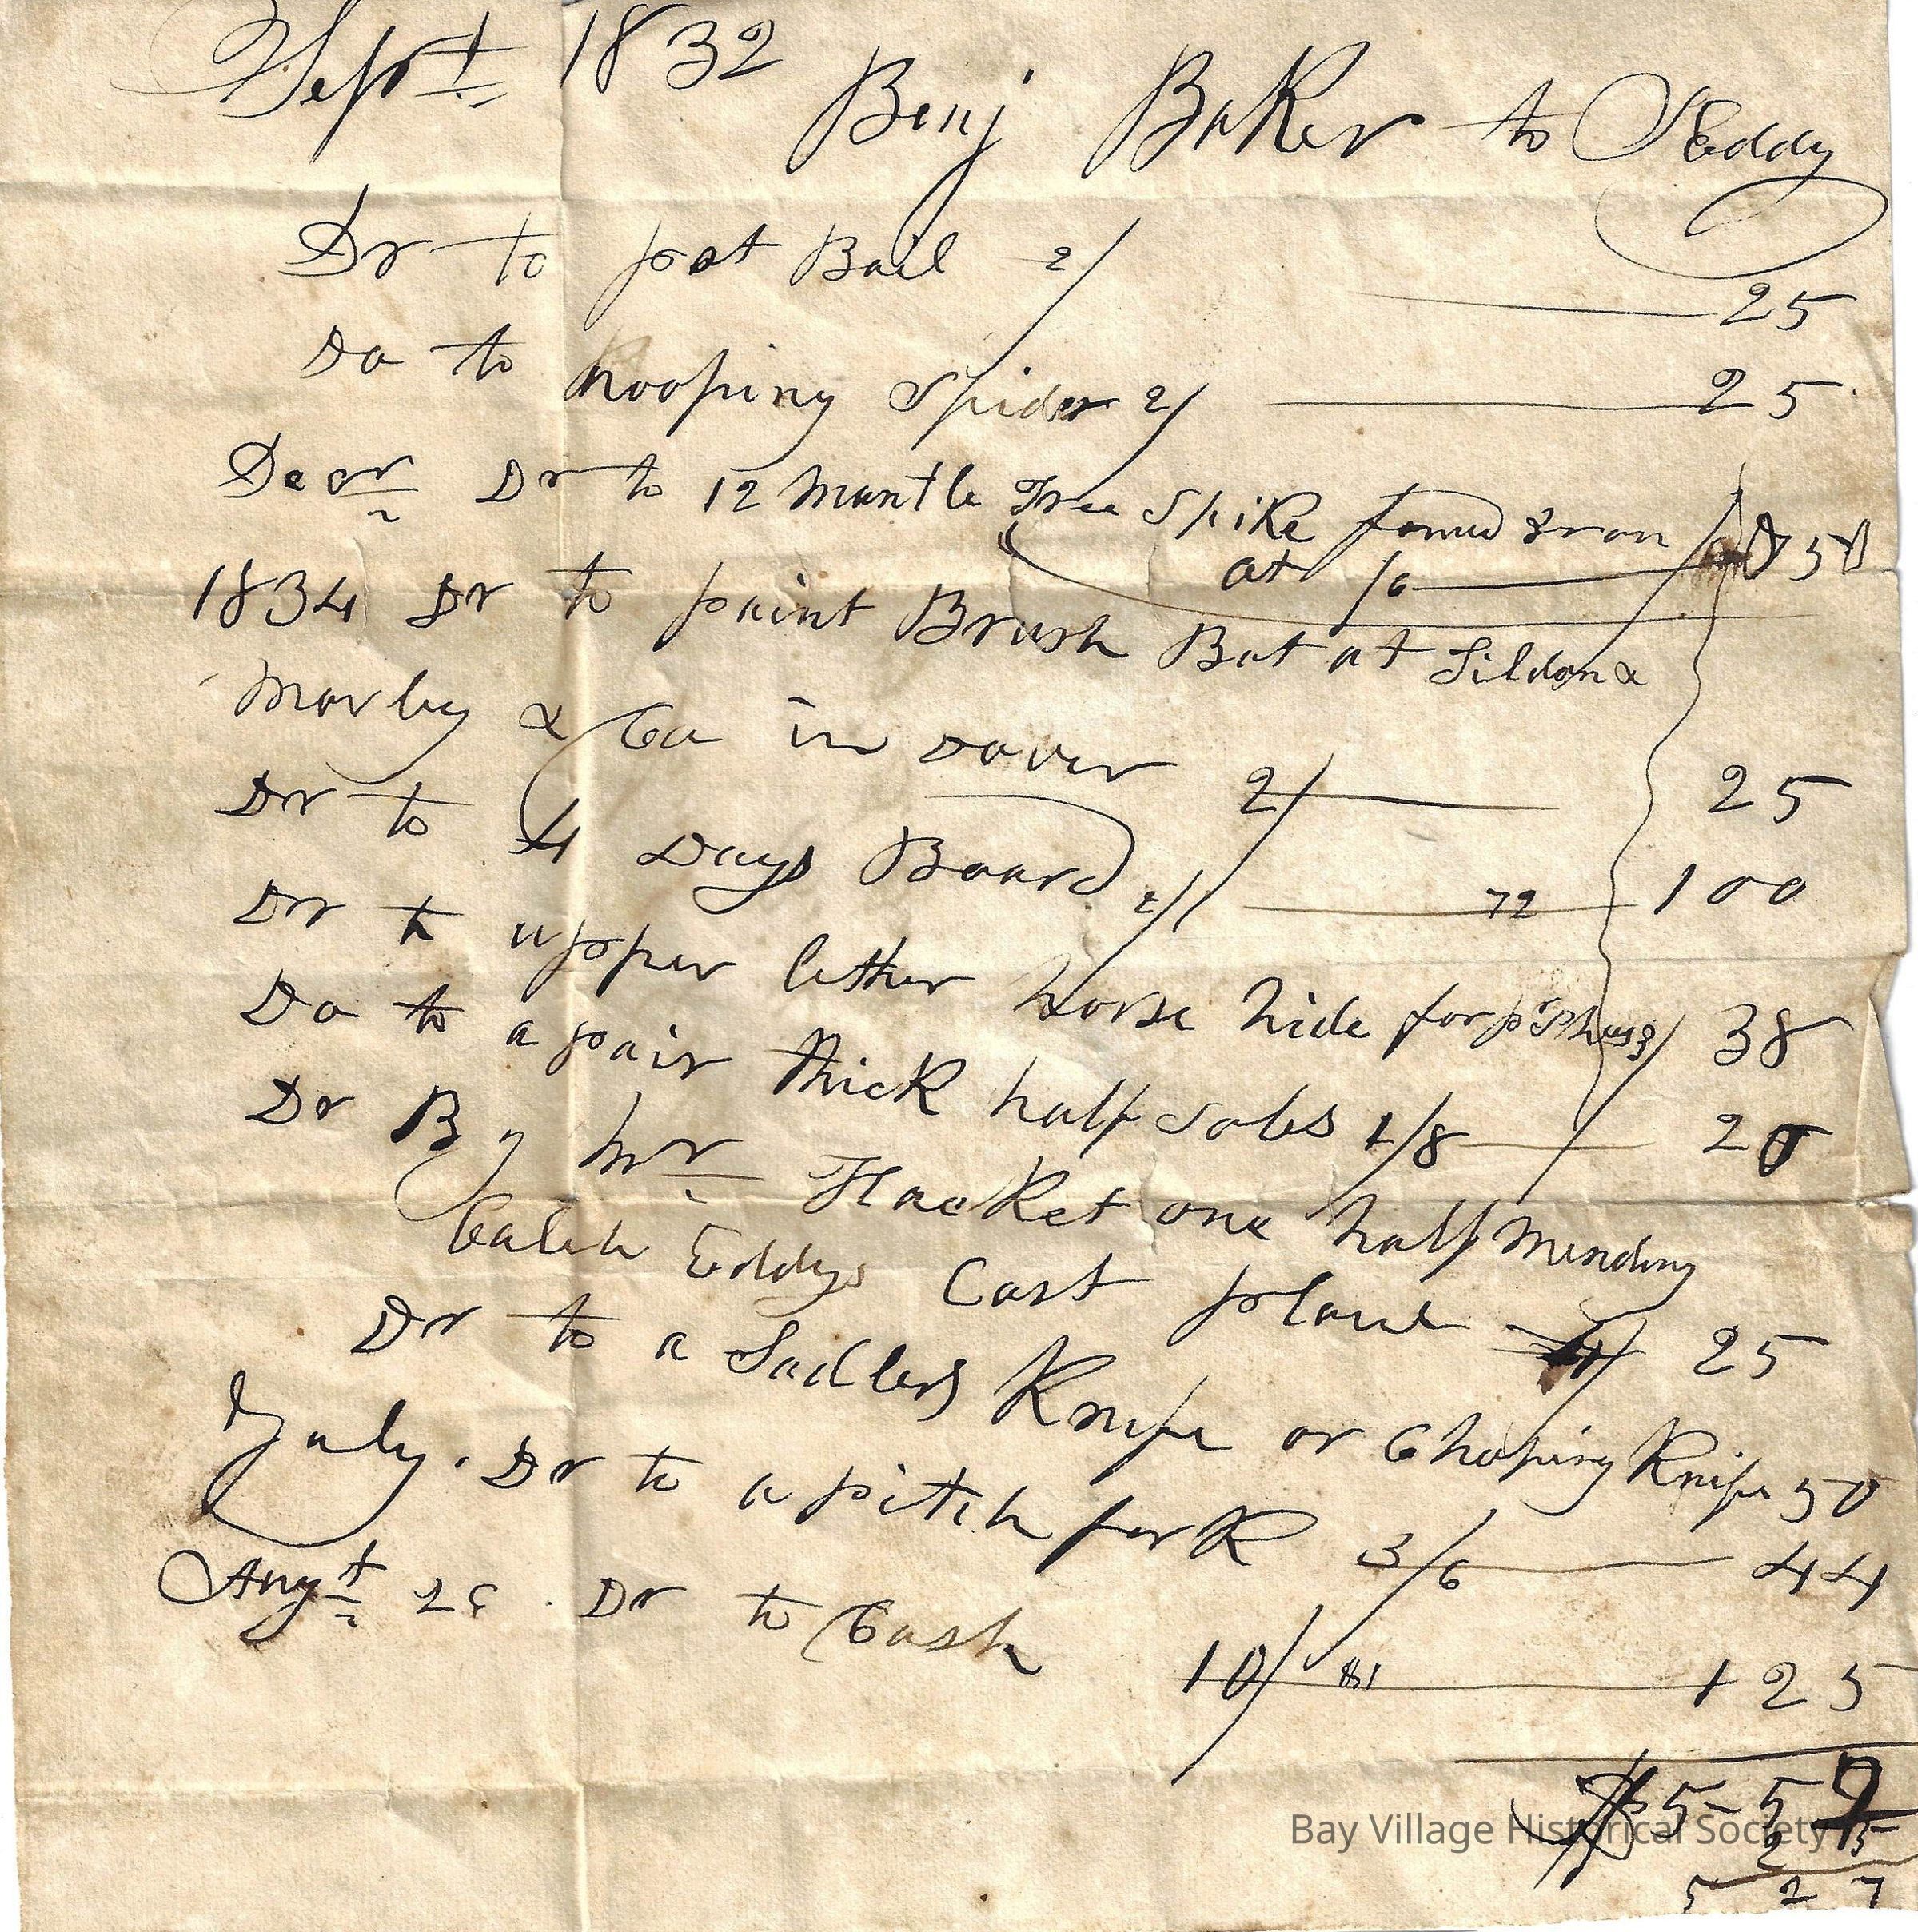 Sept 1832
Benj Baker to S Eddy
Dr to pot Bail 2/ 25
Do to hooping Spider 2/ 25
Decr Dr to 12 Mantle Tree Spike found Iron
at /6 50
1834 Dr to paint Brush Bot at
Morley & Co in Dover 2/ 25
Dr to 4 Days Board 2/ 72 100
Dr to upper lether horse hide for pr Shus 3/ 38
Do to a pair thick half soles 1/8 20
Dr By Mr Hacket one half mending
Caleb Eddys Cast plow 25
Dr to a Sadlers Knife or Choping Knife 50
July. Dr to a pitch fork 3/6 44
Augt Dr to Cash
10/ 125
$5-52
25
5 27
Bay Village Historical Society